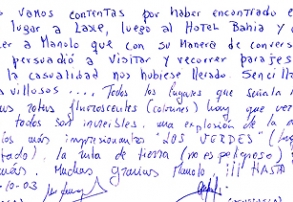 vamos contentas por haber encontrado e
lugar a Laxe, luego al HOTEL BAHIA y c
er a Manolo que con su manera de convers
persuadió a visitar y recorrer parajes
la casualidad nos hubiese llevado. Sencill
villosos .... Todos los lugares que señala
rotus fluorescentes (colores) hay que ve
todos son increibles. una explosión de la
más impresionantes "LOS VERDES" (
tado), la ruta de tierra (no es peligroso)
más. Muchas gracias Manolo !!! HASTA
10-03